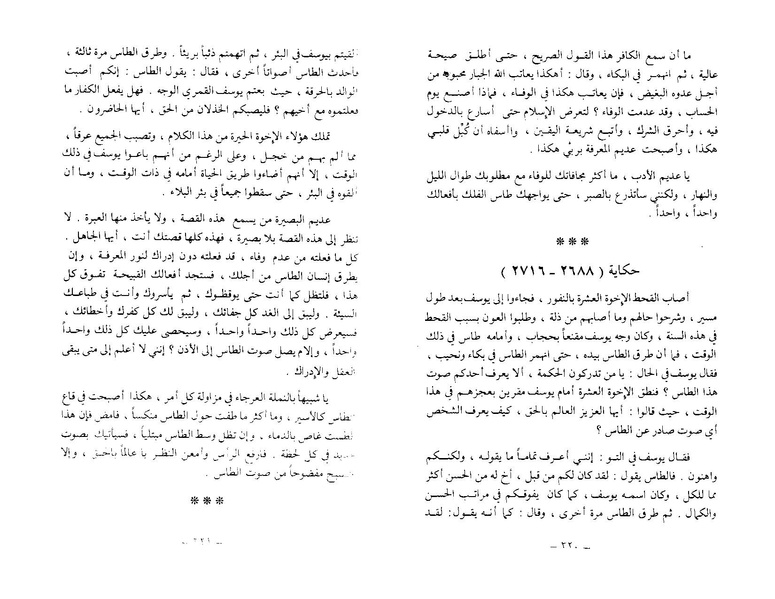 ما أن سمع الكافر هذا القول الصريح ، حتى أطلق صيحة
عالية ، ثم انهمر في البكاء ، وقال : أهكذا يعاتب الله الجبار محبوبه من
أجل عدوه البغيض ، فإن يعاتب هكذا في الوفاء ، فماذا أصنع يوم
الحساب ، وقد عدمت الوفاء ؟ لتعرض الإسلام حتى أسارع بالدخول
فيه ، وأحرق الشرك ، وأتبع شريعة اليقين ، واأسفاه أن كُبِّل قلبي
هكذا ، وأصبحت عديم المعرفة بربي هكذا .
يا عديم الأدب ، ما أكثر مجافاتك للوفاء مع مطلوبك طوال الليل
والنهار ، ولكنني سأتذرع بالصبر ، حتى يواجهك طاس الفلك بأفعالك
واحداً ، واحداً .
***
حكاية ( ٢٦٨٨ – ٢٧١٦ )
أصاب القحط الإخوة العشرة بالنفور ، فجاءوا إلى يوسف بعد طول
مسير ، وشرحوا حالهم وما أصابهم من ذلة ، وطلبوا العون بسبب القحط
في هذه السنة ، وكان وجه يوسف مقنعاً بحجاب ، وأمامه طاس في ذلك
الوقت ، فما أن طرق الطاس بيده ، حتى انهمر الطاس في بكاء ونحيب ،
فقال يوسف في الحال : يا من تدركون الحكمة ، ألا يعرف أحدكم صوت
هذا الطاس ؟ فنطق الإخوة العشرة أمام يوسف مقرين بعجزهم في هذا
الوقت ، حيث قالوا : أيها العزيز العالم بالحق ، كيف يعرف الشخص
أي صوت صادر عن الطاس ؟
فقال يوسف في التو : إنني أعرف تماماً ما يقوله ، ولكنكم
واهنون . فالطاس يقول : لقد كان لكم من قبل ، أخ له من الحسن أكثر
مما للكل ، وكان اسمه يوسف ، كما كان يفوقكم في مراتب الحسن
والكمال . ثم طرق الطاس مرة أخرى ، وقال : كما أنه يقول : لقد
– ٢٢٠ –
ألقيتم بيوسف في البئر ، ثم اتهمتم ذئباً بريئاً . وطرق الطاس مرة ثالثة ،
فأحدث الطاس أصواتاً أخرى ، فقال : يقول الطاس : إنكم أصبت
الوالد بالحرقة ، حيث بعتم يوسف القمري الوجه . فهل يفعل الكفار ما
فعلتموه مع أخيهم ؟ فليصبكم الخذلان من الحق ، أيها الحاضرون .
تملك هؤلاء الإخوة الحيرة من هذا الكلام ، وتصبب الجميع عرقاً ،
مما ألم بهم من خجل ، وعلى الرغم من أنهم باعوا يوسف في ذلك
الوقت ، إلا أنهم أضاءوا طريق الحياة أمامه في ذات الوقت ، وما أن
ألقوه في البئر ، حتى سقطوا جميعاً في بئر البلاء .
عديم البصيرة من يسمع هذه القصة ، ولا يأخذ منها العبرة . لا
تنظر إلى هذه القصة بلا بصيرة ، فهذه كلها قصتك أنت ، أيها الجاهل .
كل ما فعلته من عدم وفاء ، قد فعلته دون إدراك لنور المعرفة ، وإن
يطرق إنسان الطاس من أجلك ، فستجد أفعالك القبيحة تفوق كل
هذا ، فلتظل كما أنت حتى يوقظوك ، ثم يأسروك وأنت في طباعك
السيئة . وليبق إلى الغد كل جفائك ، وليبق لك كل كفرك وأخطائك ،
فسيعرض كل ذلك واحداً واحداً ، وسيحصى عليك كل ذلك واحداً
واحداً ، وإلام يصل صوت الطاس إلى الأذن ؟ إنني لا أعلم إلى متى يبقى
العقل والإدراك .
يا شبيهاً بالنملة العرجاء في مزاولة كل أمر ، هكذا أصبحت في قاع
الطاس كالأسير ، وما أكثر ما طفت حول الطاس منكساً ، فامض فإن هذا
الطست غاص بالدماء . وإن تظل وسط الطاس مبتلياً ، فسيأتيك بصوت
جديد في كل لحظة . فارفع الرأس وأمعن النظر يا عالماً بالحق ، وإلا
أصبح مفضوحاً من صوت الطاس .
***
– ٢٢١ –